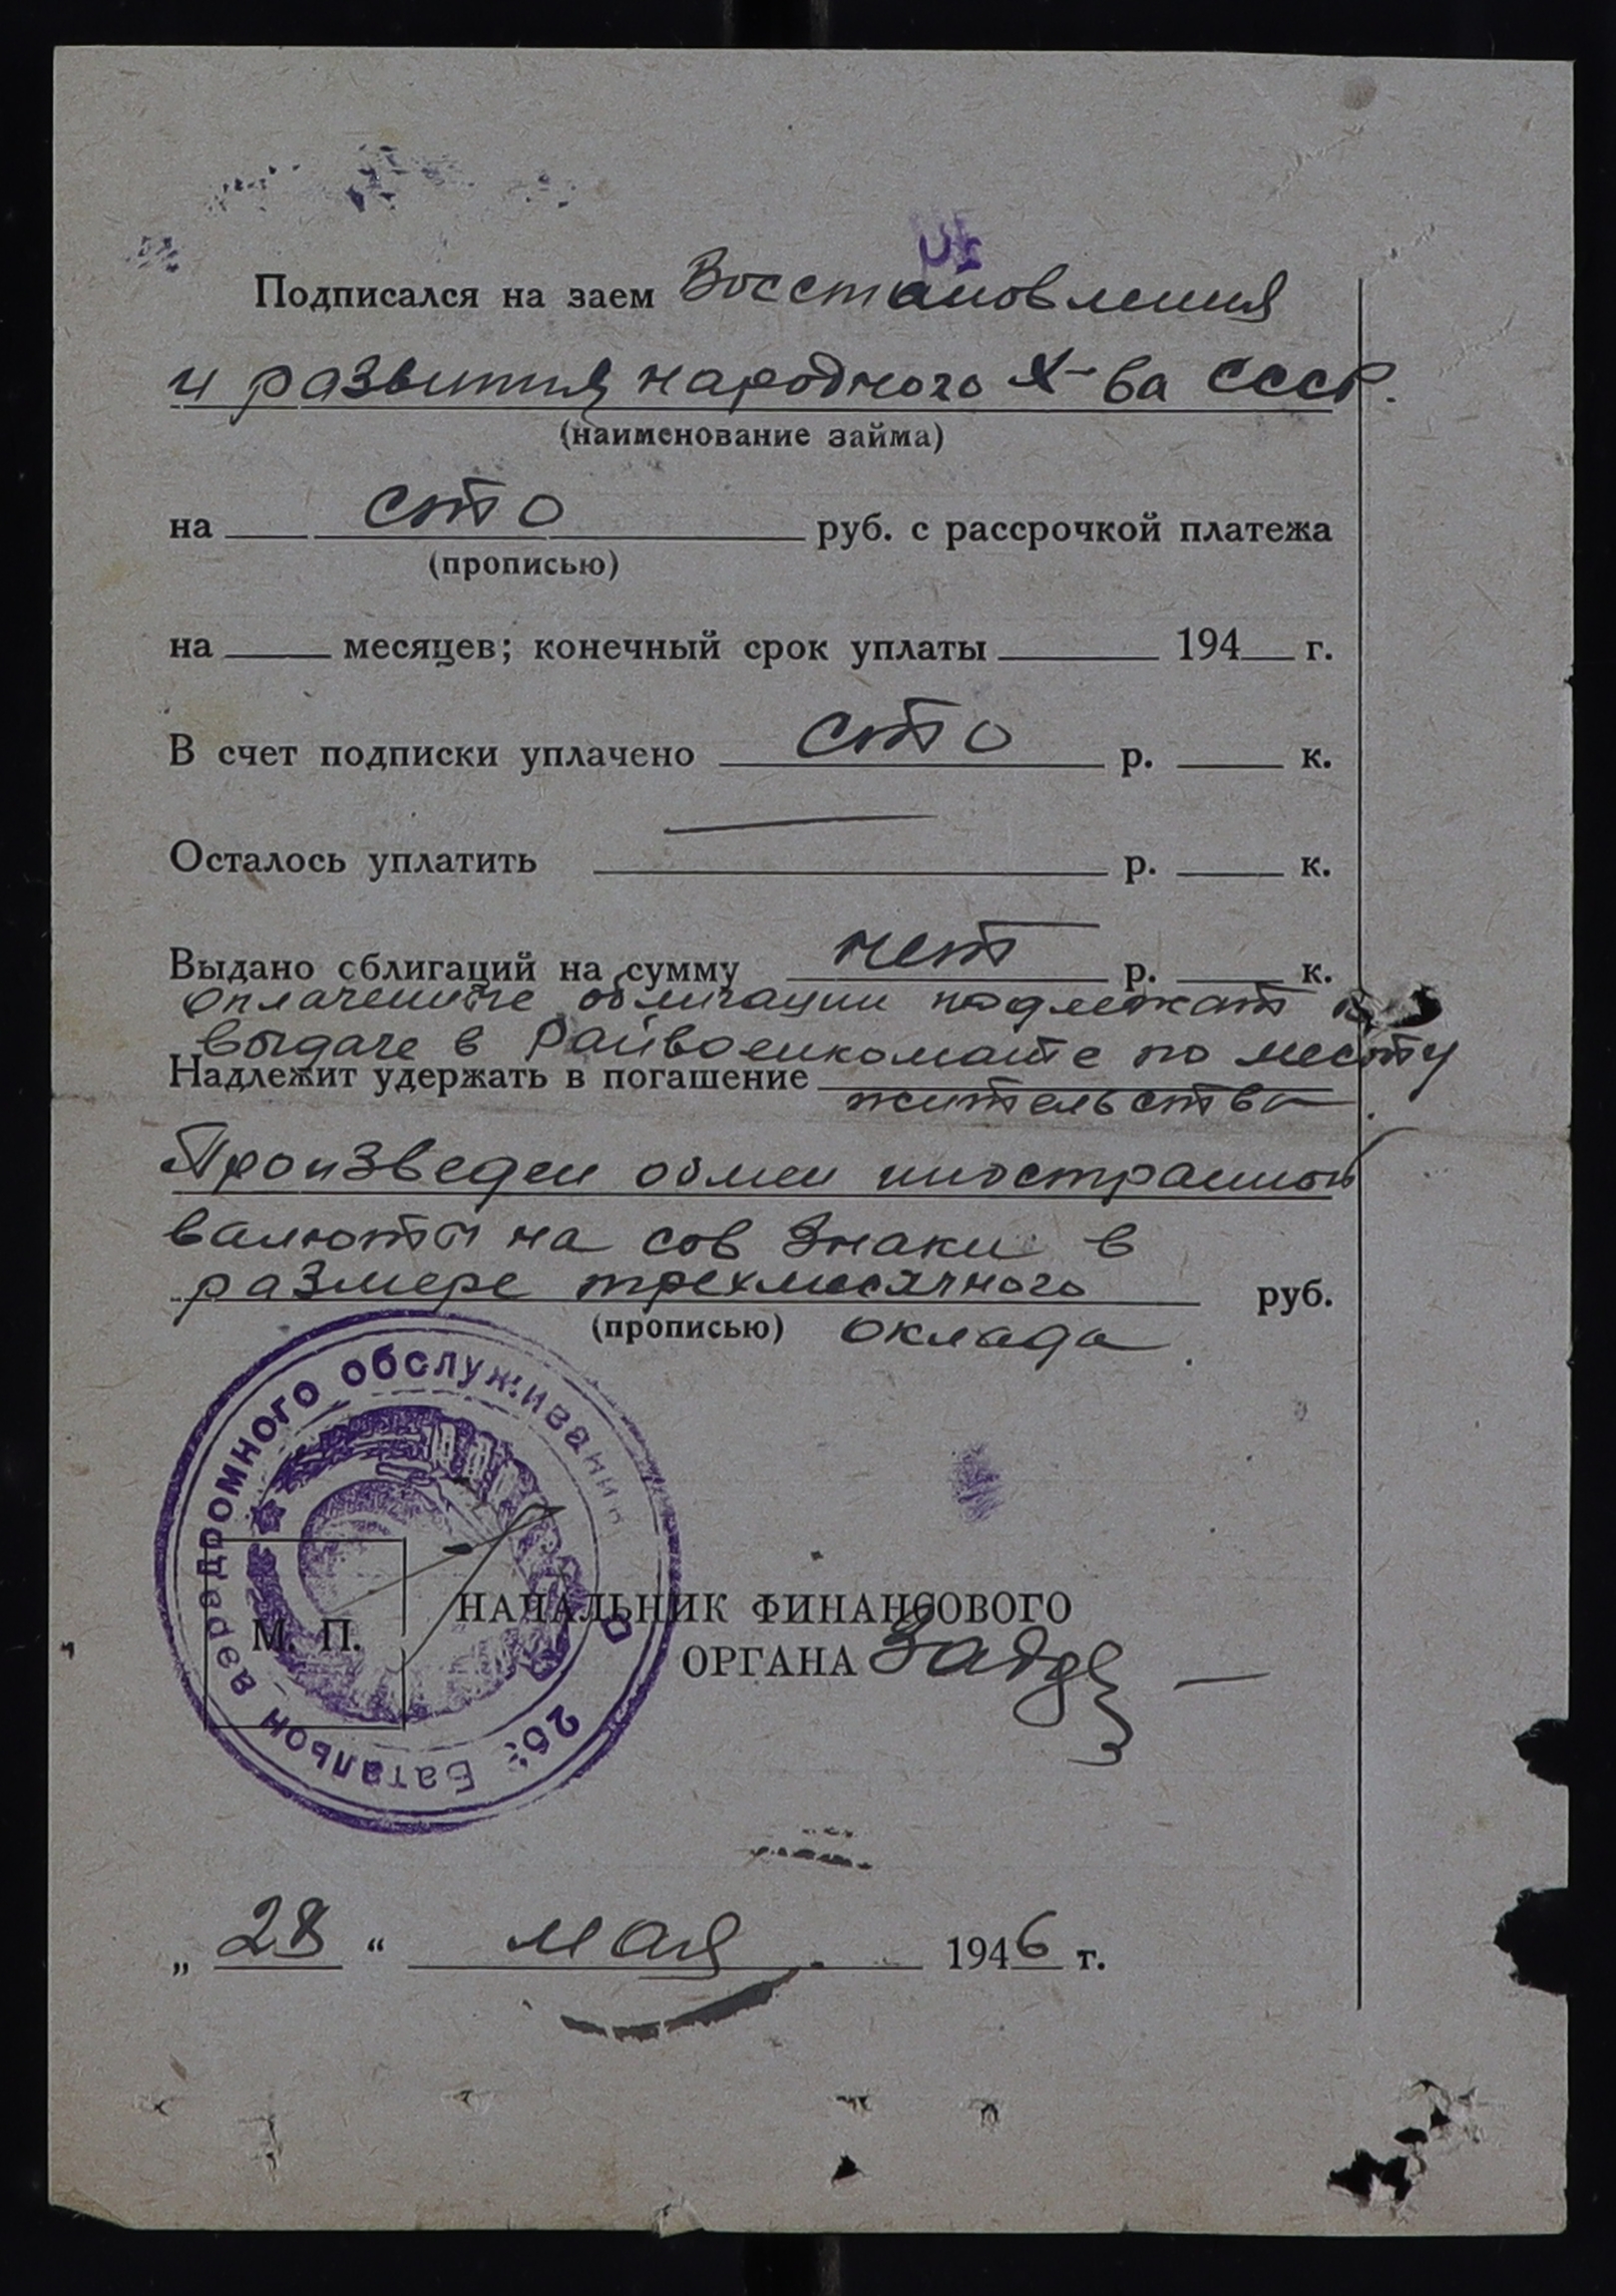 Подписался на заем Восстановления
и развития народного х-ва СССР.
(наименование займа)
на сто руб. с рассрочкой платежа
(прописью)
на месяцев; конечный срок уплаты 194 г.
В счет подписки уплачено сто р. к.
Осталось уплатить р. к.
Выдано облигаций на сумму нет р. к.
оплаченные облигации подлежат
выдаче в Райвоенкомате по месту
Надлежит удержать в погашение
жительства.
Произведен обмен иностранной
валюты на сов знаки в
размере трехмесячного руб.
(прописью) оклада.
Батальон аэродромного обслуживания
М. П.
НАЧАЛЬНИК ФИНАНСОВОГО
ОРГАНА
„28“ мая 1946 г.